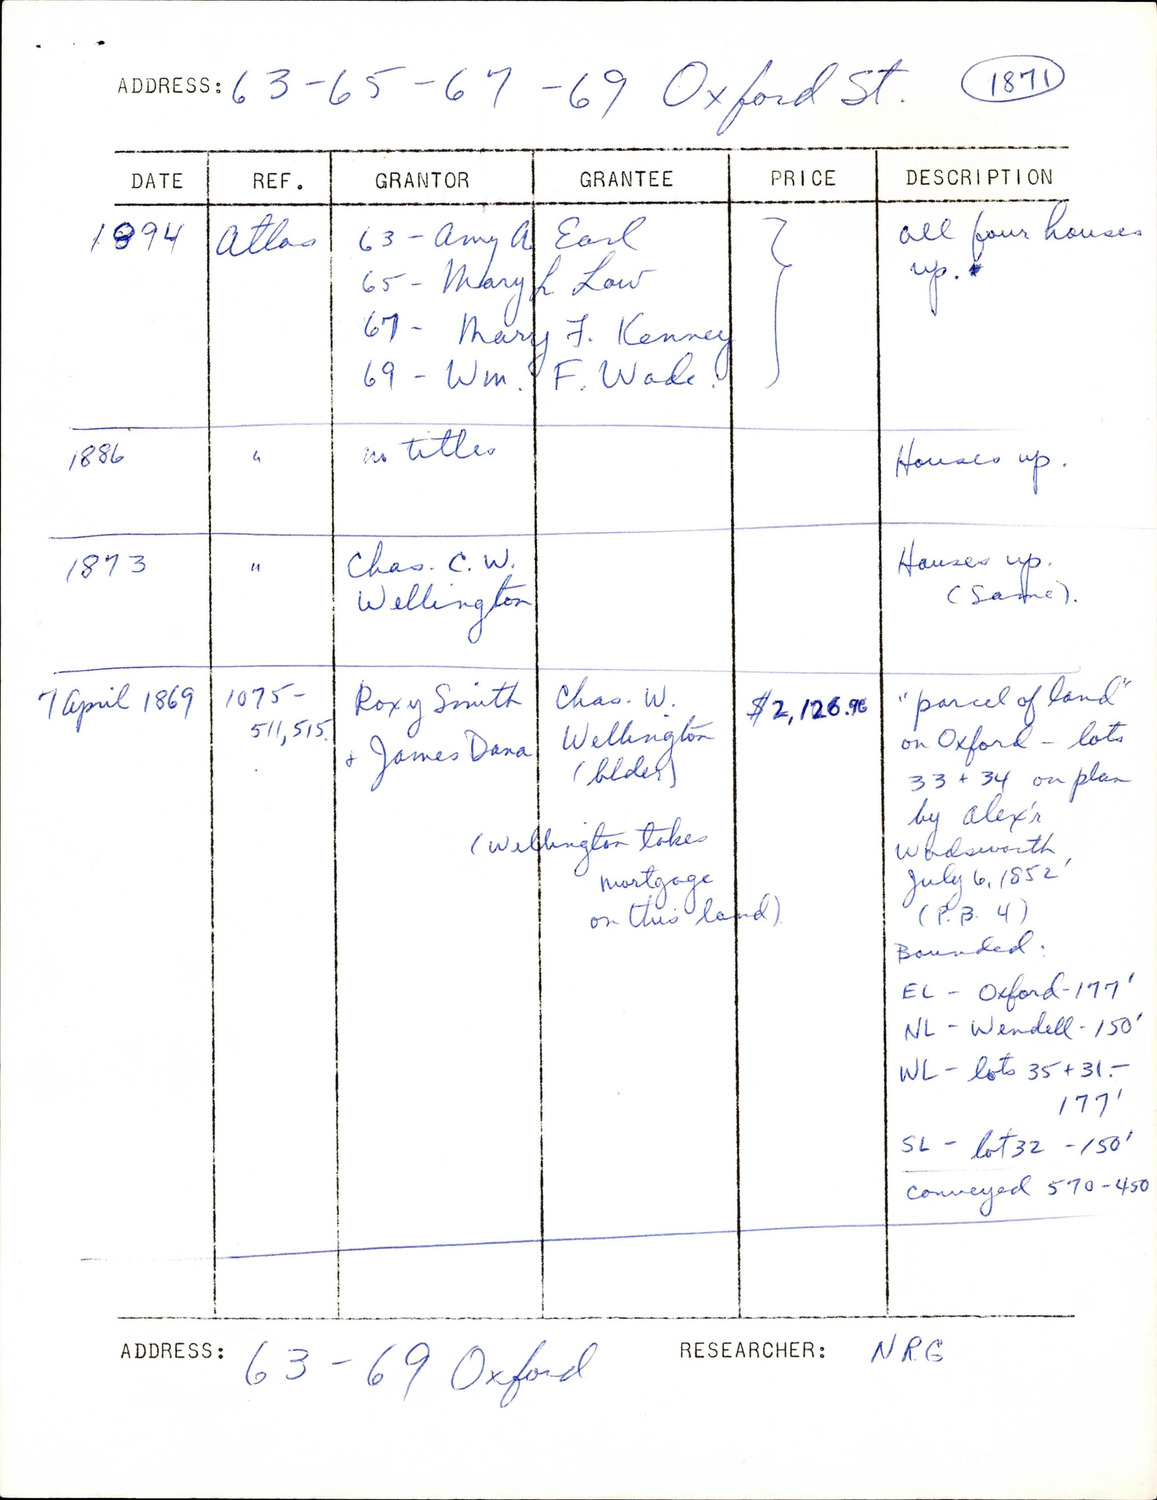 ADDRESS: 63-65-67-69 Oxford St. 1871
DATE REF. GRANTOR GRANTEE PRICE DESCRIPTION
1894 Atlas 63 - Amy A. Earl all four houses
65 - Mary L Low up.
67 - Mary F. Kenney
69 - Wm. F. Wade.
1886 " no titles Houses up.
1873 " Chas. C. W. Houses up.
Wellington (Same).
7 April 1869 1075- Roxy Smith Chas. W. $2,126.96 "parcel of land"
511,515. + James Dana Wellington on Oxford - lots
(blder) 33 + 34 on plan
(Wellington takes by Alex'r
mortgage Wadsworth
on this land) July 6, 1852
(P.B. 4)
Bounded:
EL - Oxford - 177'
NL - Wendell - 150'
WL - lots 35 + 31. -
177'
SL - lot 32 - 150'
Conveyed 570-450
ADDRESS: 63-69 Oxford RESEARCHER: NRG